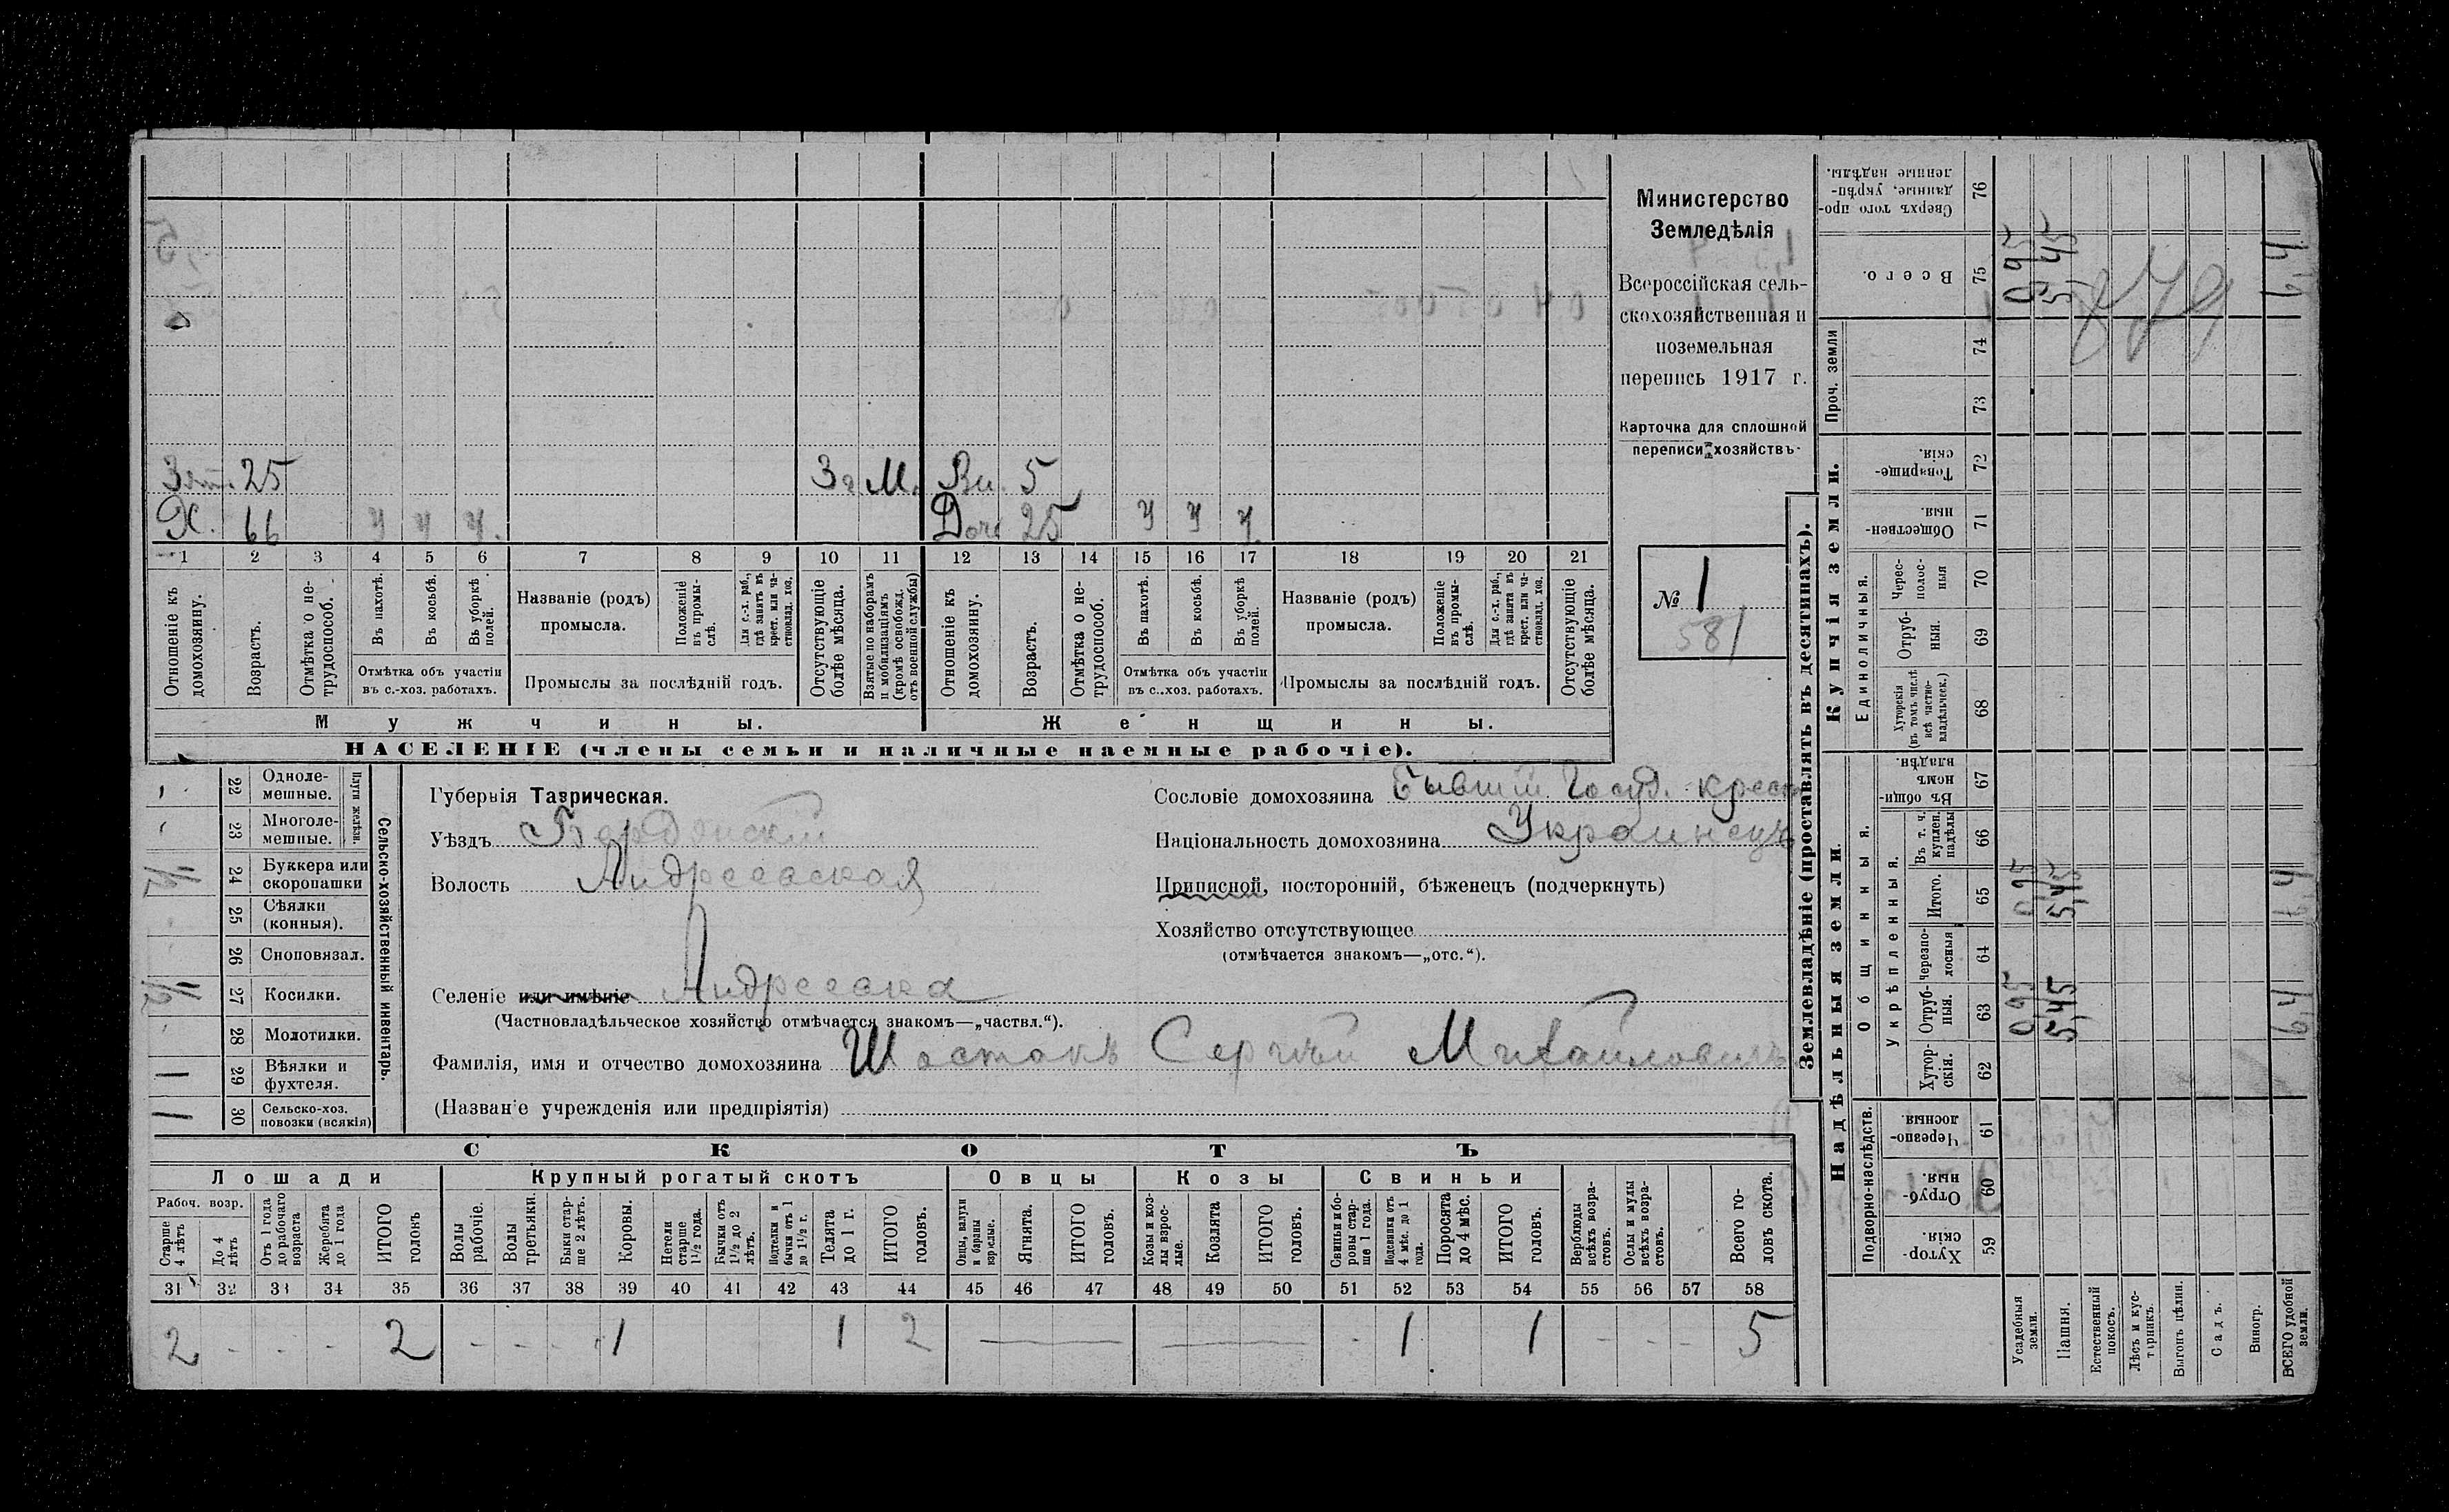 Министерство
Земледѣлія
Всероссійская сель-
скохозяйственная и
поземельная
перепись 1917 г.
Карточка для сплошной
переписи хозяйствъ.
№ 1
581
Зят. 25 За М. Вн. 5
Х. 66 У У У. Доч 25 У У У.
1 2 3 4 5 6 7 8 9 10 11 12 13 14 15 16 17 18 19 20 21
Отношеніе къ домохозяину.
Возрастъ.
Отмѣтка о не-трудоспособ.
Въ пахотѣ.
Въ косьбѣ.
Въ уборкѣ полей.
Отмѣтка объ участіи въ с.-хоз. работахъ.
Названіе (родъ) промысла.
Положеніе въ промы-слѣ.
Для с.-х. раб., гдѣ занятъ въ крест. или ча-стновлад. хоз.
Промыслы за послѣдній годъ.
Отсутствующіе болѣе мѣсяца.
Взятые по наборамъ и мобилизаціямъ (кромѣ освобожд. отъ военной службы)
Отношеніе къ домохозяину.
Возрастъ.
Отмѣтка о не-трудоспособ.
Въ пахотѣ.
Въ косьбѣ.
Въ уборкѣ полей.
Отмѣтка объ участіи въ с..хоз. работахъ.
Названіе (родъ) промысла.
Положеніе въ промы-слѣ.
Для с.-х. раб., гдѣ занята въ крест. или ча-стновлад. хоз.
Промыслы за послѣдній годъ.
Отсутствующіе болѣе мѣсяца.
Мужчины. Женщины.
НАСЕЛЕНІЕ (члены семьи и наличные наемные рабочіе).
Сельско-хозяйственный инвентарь.
Плуги желѣзн.
22 Одноле-мешные.
23 Многоле-мешные.
24 Буккера или скоропашки
25 Сѣялки (конныя).
26 Сноповязал.
27 Косилки.
28 Молотилки.
29 Вѣялки и фухтеля. 1
30 Сельско-хоз. повозки (всякія) 1
Губернія Таврическая.
Уѣздъ Бердянскій
Волость Андреевская
Селеніе или имѣніе Андреевка
(Частновладѣльческое хозяйство отмѣчается знакомъ—„частвл.“).
Фамилія, имя и отчество домохозяина Шостакъ Сергѣй Михайловичъ
(Названіе учрежденія или предпріятія)
Сословіе домохозяина Бывшій Госуд. крест
Національность домохозяина Украинецъ
Приписной, посторонній, бѣженецъ (подчеркнуть)
Хозяйство отсутствующее
(отмѣчается знакомъ—„отс.“).
СКОТЪ
Лошади Крупный рогатый скотъ Овцы Козы Свиньи
Рабоч. возр.
Старше 4 лѣтъ
До 4 лѣтъ
Отъ 1 года до рабочаго возраста
Жеребята до 1 года
ИТОГО головъ
Волы рабочіе.
Волы третьяки.
Быки стар-ше 2 лѣтъ.
Коровы.
Нетели старше 1 1/2 года.
Бычки отъ 1 1/2 до 2 лѣтъ.
Подтелки и бычки отъ 1 до 1 1/2 г.
Телята до 1 г.
ИТОГО головъ.
Овцы, валухи и бараны взрослые.
Ягнята.
ИТОГО головъ.
Козы и коз-лы взрос-лые.
Козлята
ИТОГО головъ.
Свиньи и бо-ровы стар-ше 1 года.
Подсвинки отъ 4 мѣс. до 1 года.
Поросята до 4 мѣс.
ИТОГО головъ.
Верблюды всѣхъ возра-стовъ.
Ослы и мулы всѣхъ возра-стовъ.
Всего го-ловъ скота.
31 32 33 34 35 36 37 38 39 40 41 42 43 44 45 46 47 48 49 50 51 52 53 54 55 56 57 58
2 - - - 2 - - - 1 1 2 — — - 1 1 - - - 5
Землевладѣніе (проставлять въ десятинахъ).
Надѣльныя земли.
Купчія земли.
Проч. земли
Подворно-наслѣдств.
Общинныя.
Укрѣпленныя.
Единоличныя.
Хутор-скія. 59
Отруб-ныя. 60
Черезпо-лосныя 61
Хутор-скія. 62
Отруб-ныя. 63
Черезпо-лосныя 64
Итого. 65
Въ т. ч. куплен. надѣлы 66
Въ общи-номъ владѣн. 67
Хуторскія (въ томъ числѣ всѣ частно-владѣльческ.) 68
Отруб-ныя. 69
Черес-полос-ныя 70
Обществен-ныя. 71
Товарище-скія. 72
73
74
Всего. 75
Сверхъ того про-данные, укрѣп-ленные надѣлы. 76
Усадебныя земли. 0,95 0,95 0,95
Пашня. 5,45 5,45 5,45
Естественный покосъ.
Лѣсъ и кус-тарникъ.
Выгонъ цѣлин.
Садъ.
Виногр.
ВСЕГО удобной земли. 6,4 6,4 6,4